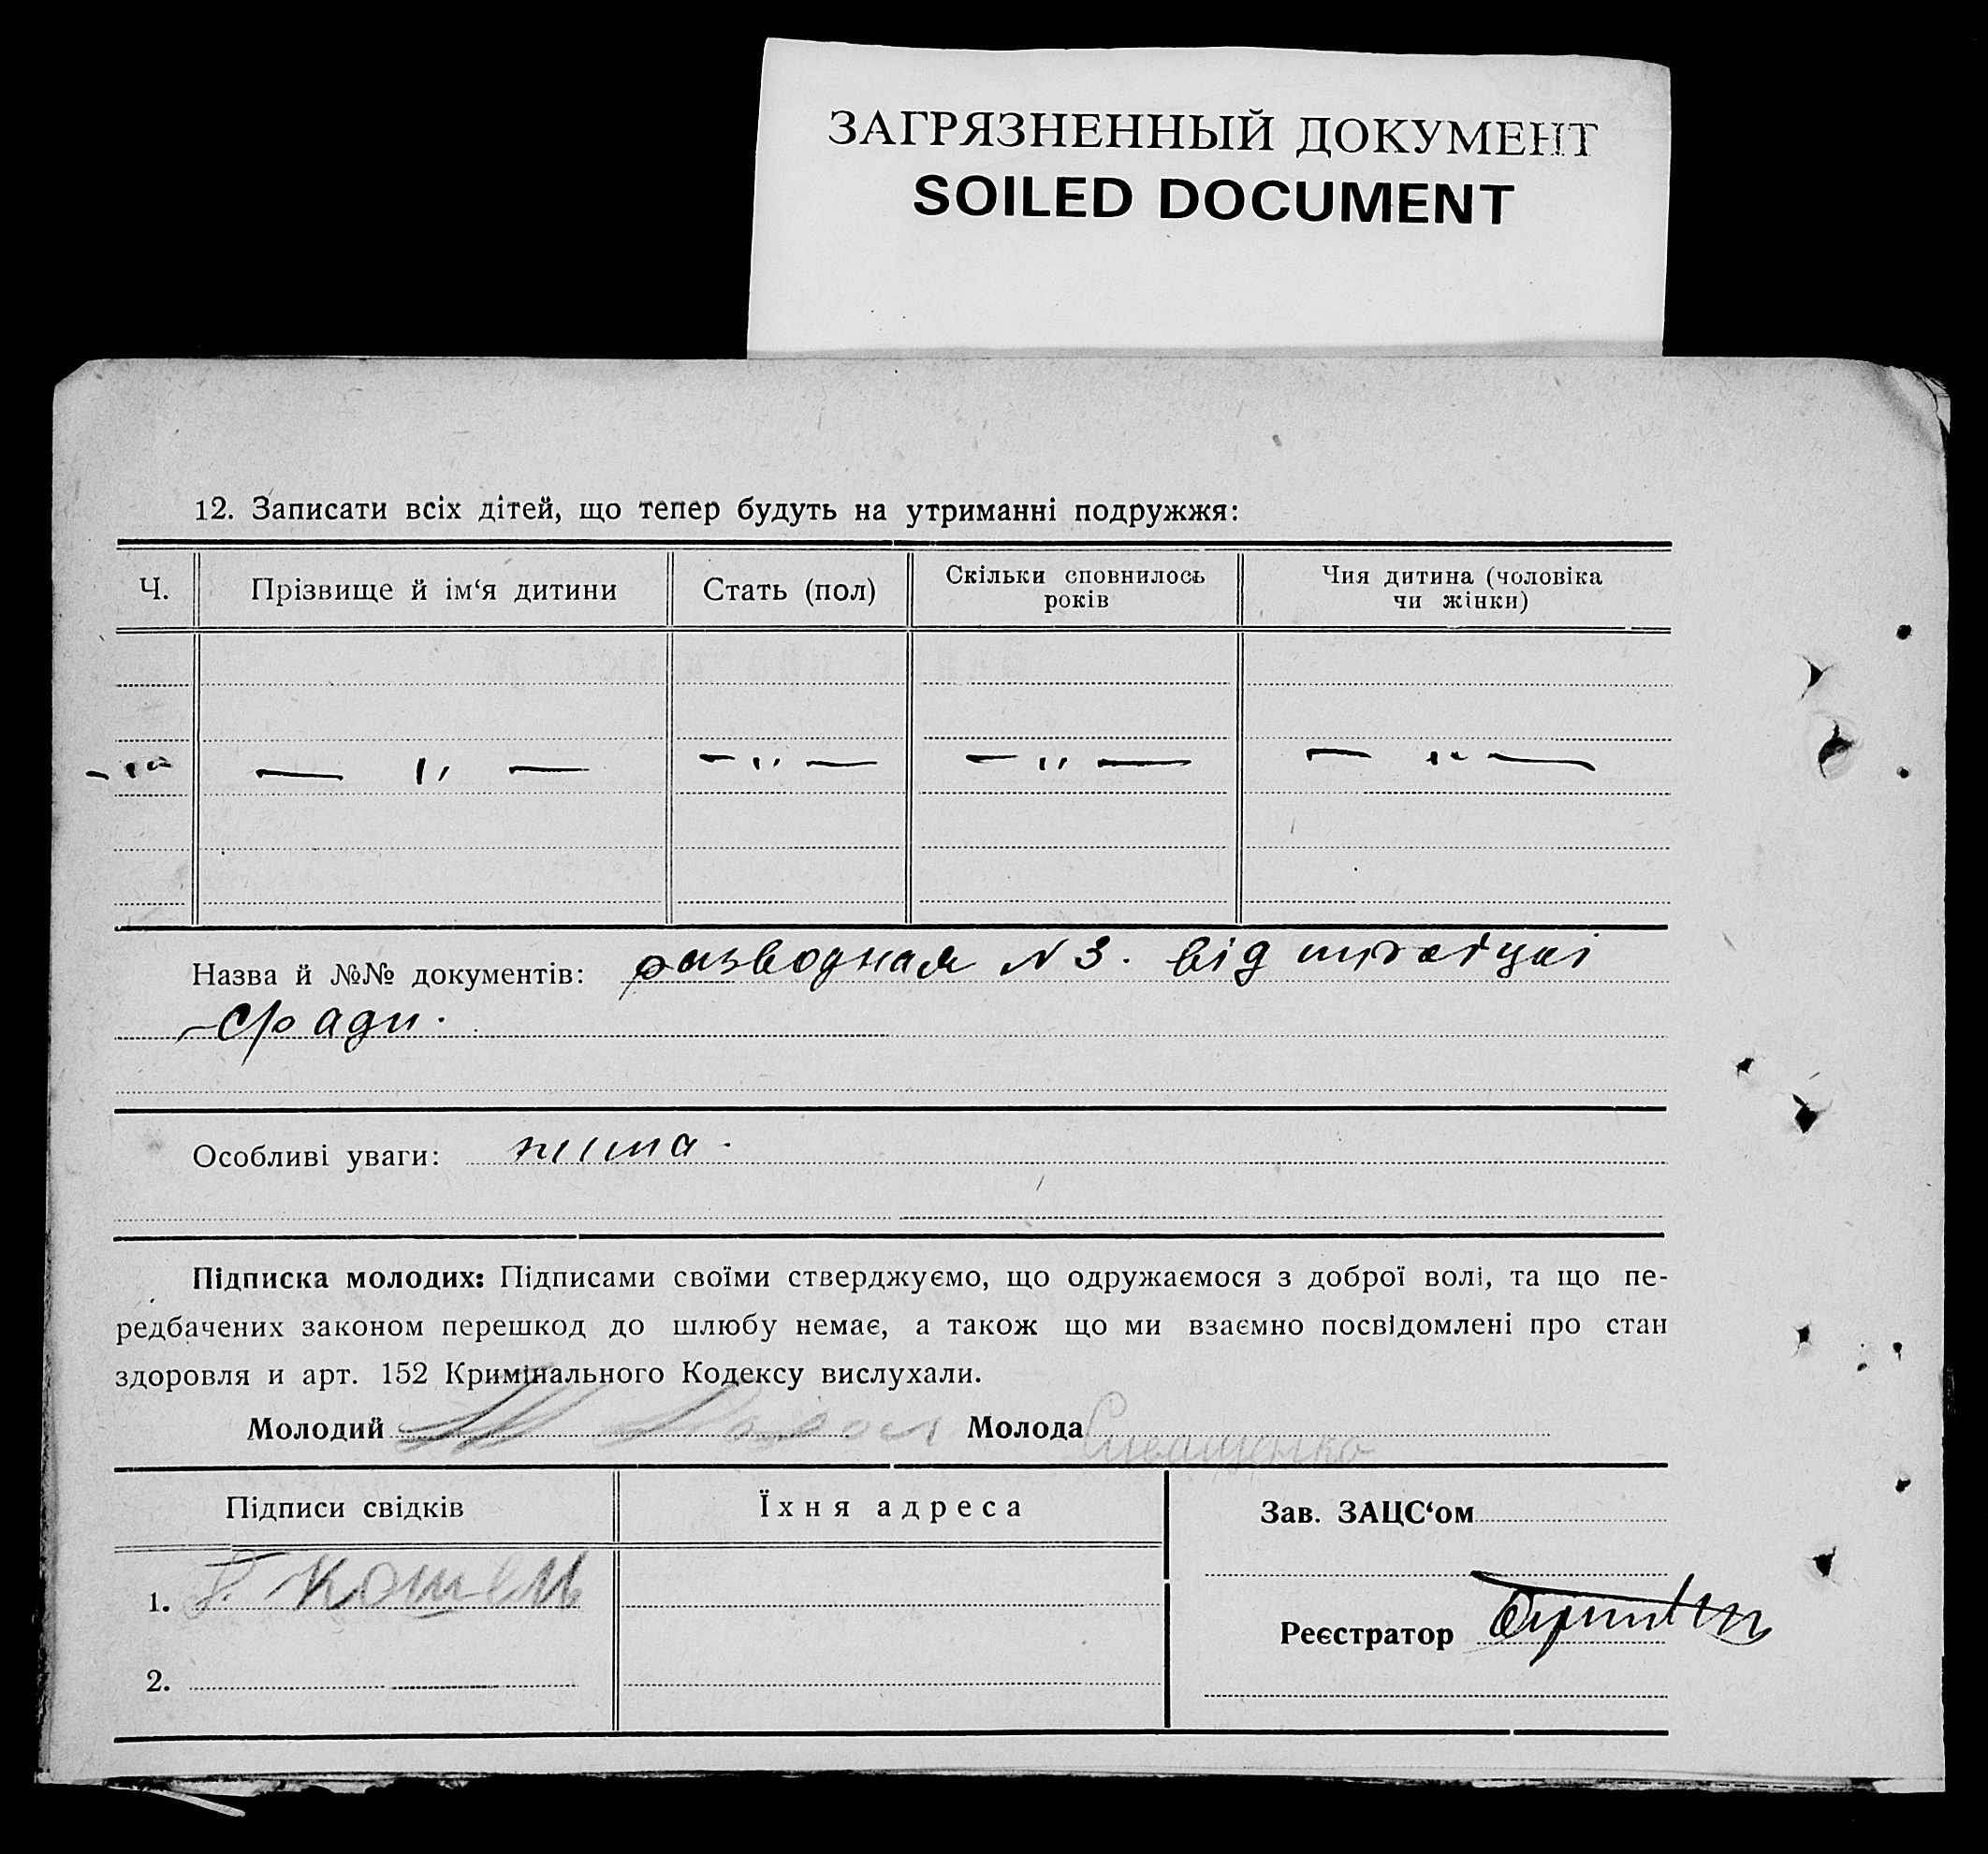 ЗАГРЯЗНЕННЫЙ ДОКУМЕНТ
SOILED DOCUMENT
12. Записати всіх дітей, що тепер будуть на утриманні подружжя:
Ч. Прізвище й ім‘я дитини Стать (пол) Скільки сповнилось років Чия дитина (чоловіка чи жінки)
— " — — " — — " — — " — — " —
Назва й №№ документів: разводная N 3. від
с/ради.
Особливі уваги: нима.
Підписка молодих: Підписами своїми стверджуємо, що одружаємося з доброї волі, та що пе-
редбачених законом перешкод до шлюбу немає, а також що ми взаємно посвідомлені про стан
здоровля и арт. 152 Кримінального Кодексу вислухали.
Молодий Молода
Підписи свідків Їхня адреса Зав. ЗАЦС‘ом
1. Кошель
Реєстратор
2.